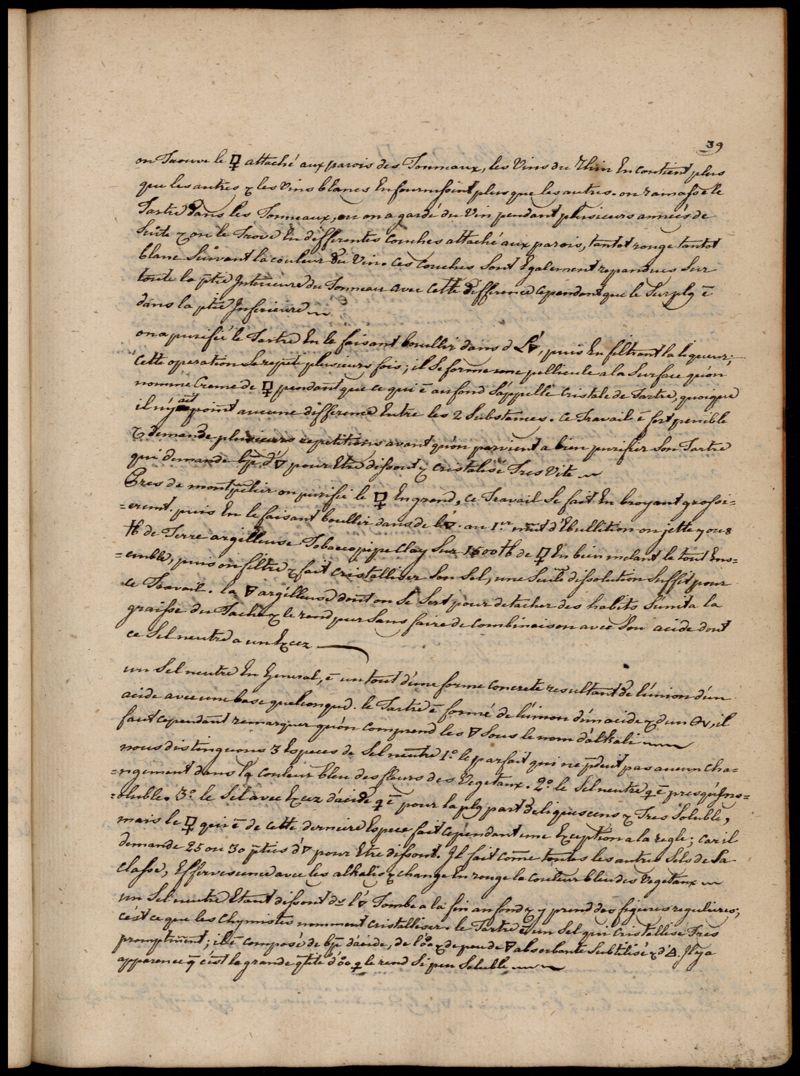 39
on Trouve le 🜿 attaché aux parois des Tonneaux, les Vins du Rhin En contient plus
que les autres & les Vins blancs En fournissoint plus que les autres. on ramasse le
Tartre dans les Tonneaux, ou on a gardé du Vin pendant plusieurs années de
suite & on le Trove En differentes Couches attaché aux parois, tantot rouge tantot
blanc Suivant la couleur du Vin. Ces Couches sont Egalement repandues Sur
toute la ptie Interieure du Tonneau avec cette difference Cependant que le Surplq ē
dans la ptie Inferieure
on a purifié le Tartre En le faisant bouillir dans d L'🜄, puis En filtrant la liqueur;
Cette operation Se repet plusieurs fois, il se forme une pellicule a la Surface qu'on
nomme Creme de 🜿 pendant que ce qui ē au fond S'appelle Cristale de Tartre, quoique
il n'y ait point aucune difference Entre les 2 Substances. Ce Travail ē fort penible
& demande plusieurs repetitions avant qu'on parvient a bien purifier Son Tartre
qui demande bp d'🜄 pour Etre dissout & cristalise Tres Vite
Pres de montpelier on purifie le 🜿 En grand, Ce Travail Se fait En broyant grossi-
=eremt. puis En le faisant boullir dans de l'🜄. au 1er mnt d'Ebullition on jette
℔ de Terre argilleuse Tobacopipe Clay Sur 1500 ℔ de 🜿 En bien melant le tout Ens-
=emble, puis on filtre & fait Cristalliser Son Sel, une Seule dissolution Suffit pour
ce Travail. la 🜃 argilleuse dont on Se Sert pour detacher des habits S'unit a la
graisse du Tache & le rend pur Sans faire de Combinaison avec Son acide dont
ce Sel neutre a un Excez
un Sel neutre En General, ē un tout d'une forme Concrete resultant de l'union d'un
acide avec une base quelconque. le Tartre ē formé de l'union d'un acide & d'un 🜔v, il
faut cependant remarquer qu'on comprend les 🜃 Sous le nom d'alkali
nous distinguons 3 Especes de Sel neutre 1.º le parfait qui ne pduit pas aucun cha-
=ngement dans la couleur bleu des fleurs des Vegetaux. 2.º le Sel neutre q ē presqu'Ins-
=oluble. 3.º le Sel avec Excez d'acide q ē pour la plq part deliquescens & Tres Soluble,
mais le 🜿 qui ē de cette derniere Espece fait cependant une Exception a la regle; car il
demande 25 ou 30 pties d'🜄 pour Etre dissout. Il fait com̄e toutes les autre Sels de Sa
Classe, Effervescence avec les alkalis & change En rouge la Couleur bleu des Vegetaux
un Sel neutre Etant dissout ds l'🜄 Tombe a la fin au fond & y prend des figures regulieres;
c'est ce que les Chymistes nomment cristalliser. le Tartre ē un Sel qui Cristallise Tres
promptemnt; il ē composé de bp d'acide, de l'oo & de peu de 🜃 absorbante Subtilisé & d'🜂. Il y a
apparence q̄ c'est la grande qtité d'oo q le rend Si peu Soluble